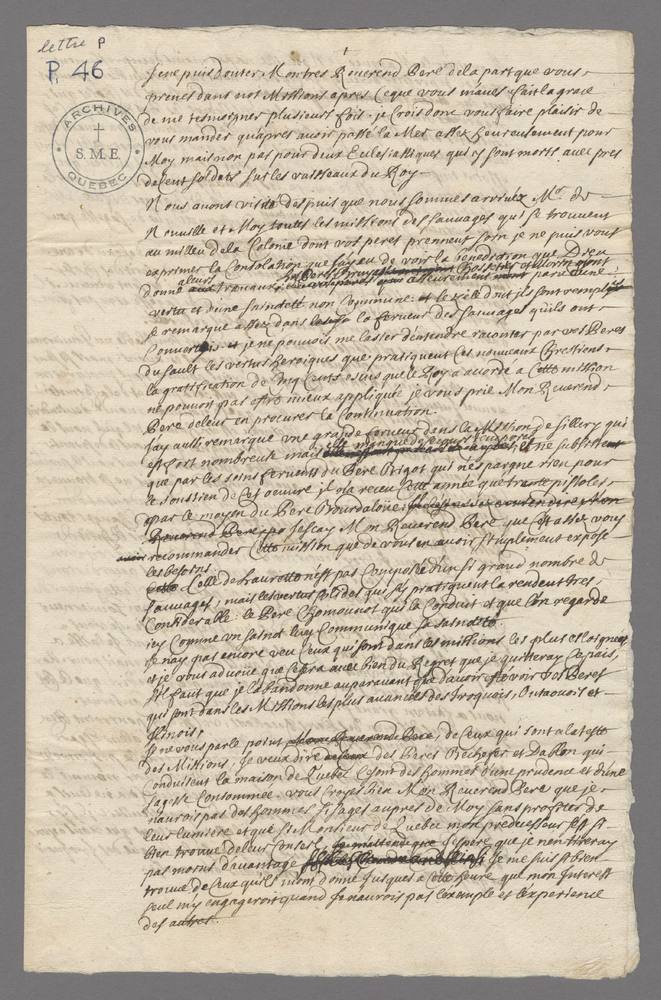 lettre P
P. 46
ARCHIVES
S.M.E.
QUEBEC
Je ne puis douter Mon tres Reverend Pere de la part que vous
prenez dans nos Missions apres ce que vous m'aves fait la grace
de me tesmoigner plusieurs fois. je crois donc vous faire plaisir de
vous mander qu'apres avoir passé la Mer assez heureusement pour
Moy mais non pas pour deux Eclesiastiques qui y sont morts avec pres
de cent soldats sur les vaisseaux du Roy
Nous avons visité despuis que nous sommes arrivéz Mr de
et Moy toutes les missions des sauvages qui se trouvent
au milieu de la Colonie dont vos peres prennent soin je ne puis vous
exprimer la Consolation que j'ay eu de voir la benediction que Dieu
donne a leurs travaux
vertu et d'une sainteté non commune et le zele dont ils sont remplis
se remarque assez dans la ferveur des sauvages qu'ils ont
Convertis et je ne pouvois me lasser d'entendre raconter par vos Peres
du sault les vertus heroiques que pratiquent ces nouveaux Chrestiens
la gratification de cinq Cents escus que le Roy a acordé a cette mission
ne pouvoit pas estre mieux appliquée je vous prie Mon Reverend
Pere de leur en procurer la Continuation.
J'ay aussi remarqué une grande ferveur dans la Mission de sillery qui
est fort nombreuse mais elle manque de secours et ne subsiste
que par les soins fervents du Pere Bigot qui n'espargne rien pour
le soustien de cet oeuvre il n'a receu cette année que trante pistoles
par le moyen du Pere Bourdaloue
Reverend Pere Je sçay Mon Reverend Pere que c'est assez vous
recommander cette mission que de vous en avoir simplement exposé
les besoins.
Celle de Laurette n'est pas Composée d'un si grand nombre de
sauvages, mais les vertus solides qui s'y pratiquent la rendent tres
Considerable. le Pere Chomounot qui la Conduit et que l'on regarde
icy Comme un saint luy Communique sa sainteté.
Je n'ay pas encore veu Ceux qui sont dans les missions les plus esloignées
et je vous advoüe que ce sera avec bien du Regret que je quitteray ce païs,
s'il faut que je l'abandonne auparavant que d'avoir esté voir vos Peres
qui sont dans les Missions les plus avancées des Iroquois, Outaouois et
Ilinois,
Je ne vous parle point Mon Reverend Pere, de Ceux qui sont a la teste
des Missions, je veux dire des Peres Bechefer et Dablon qui
Conduisent la maison de Quebec Ce sont des hommes d'une prudence et d'une
sagesse Consommée. vous croyes bien Mon Reverend Pere que je
n'aurois pas des hommes si sages aupres de Moy sans profiter de
leur lumiere et que si Monsieur de Quebec mon predecesseur s'est si
bien trouvé de leur Conseil, j'espere que je n'en tireray
pas moins d'avantage Je me suis si bien
trouvé de Ceux qu'ils m'ont donné jusques a cette heure que mon interest
seul m'y engageroit quand je n'aurois pas l'exemple et l'experience
des autres